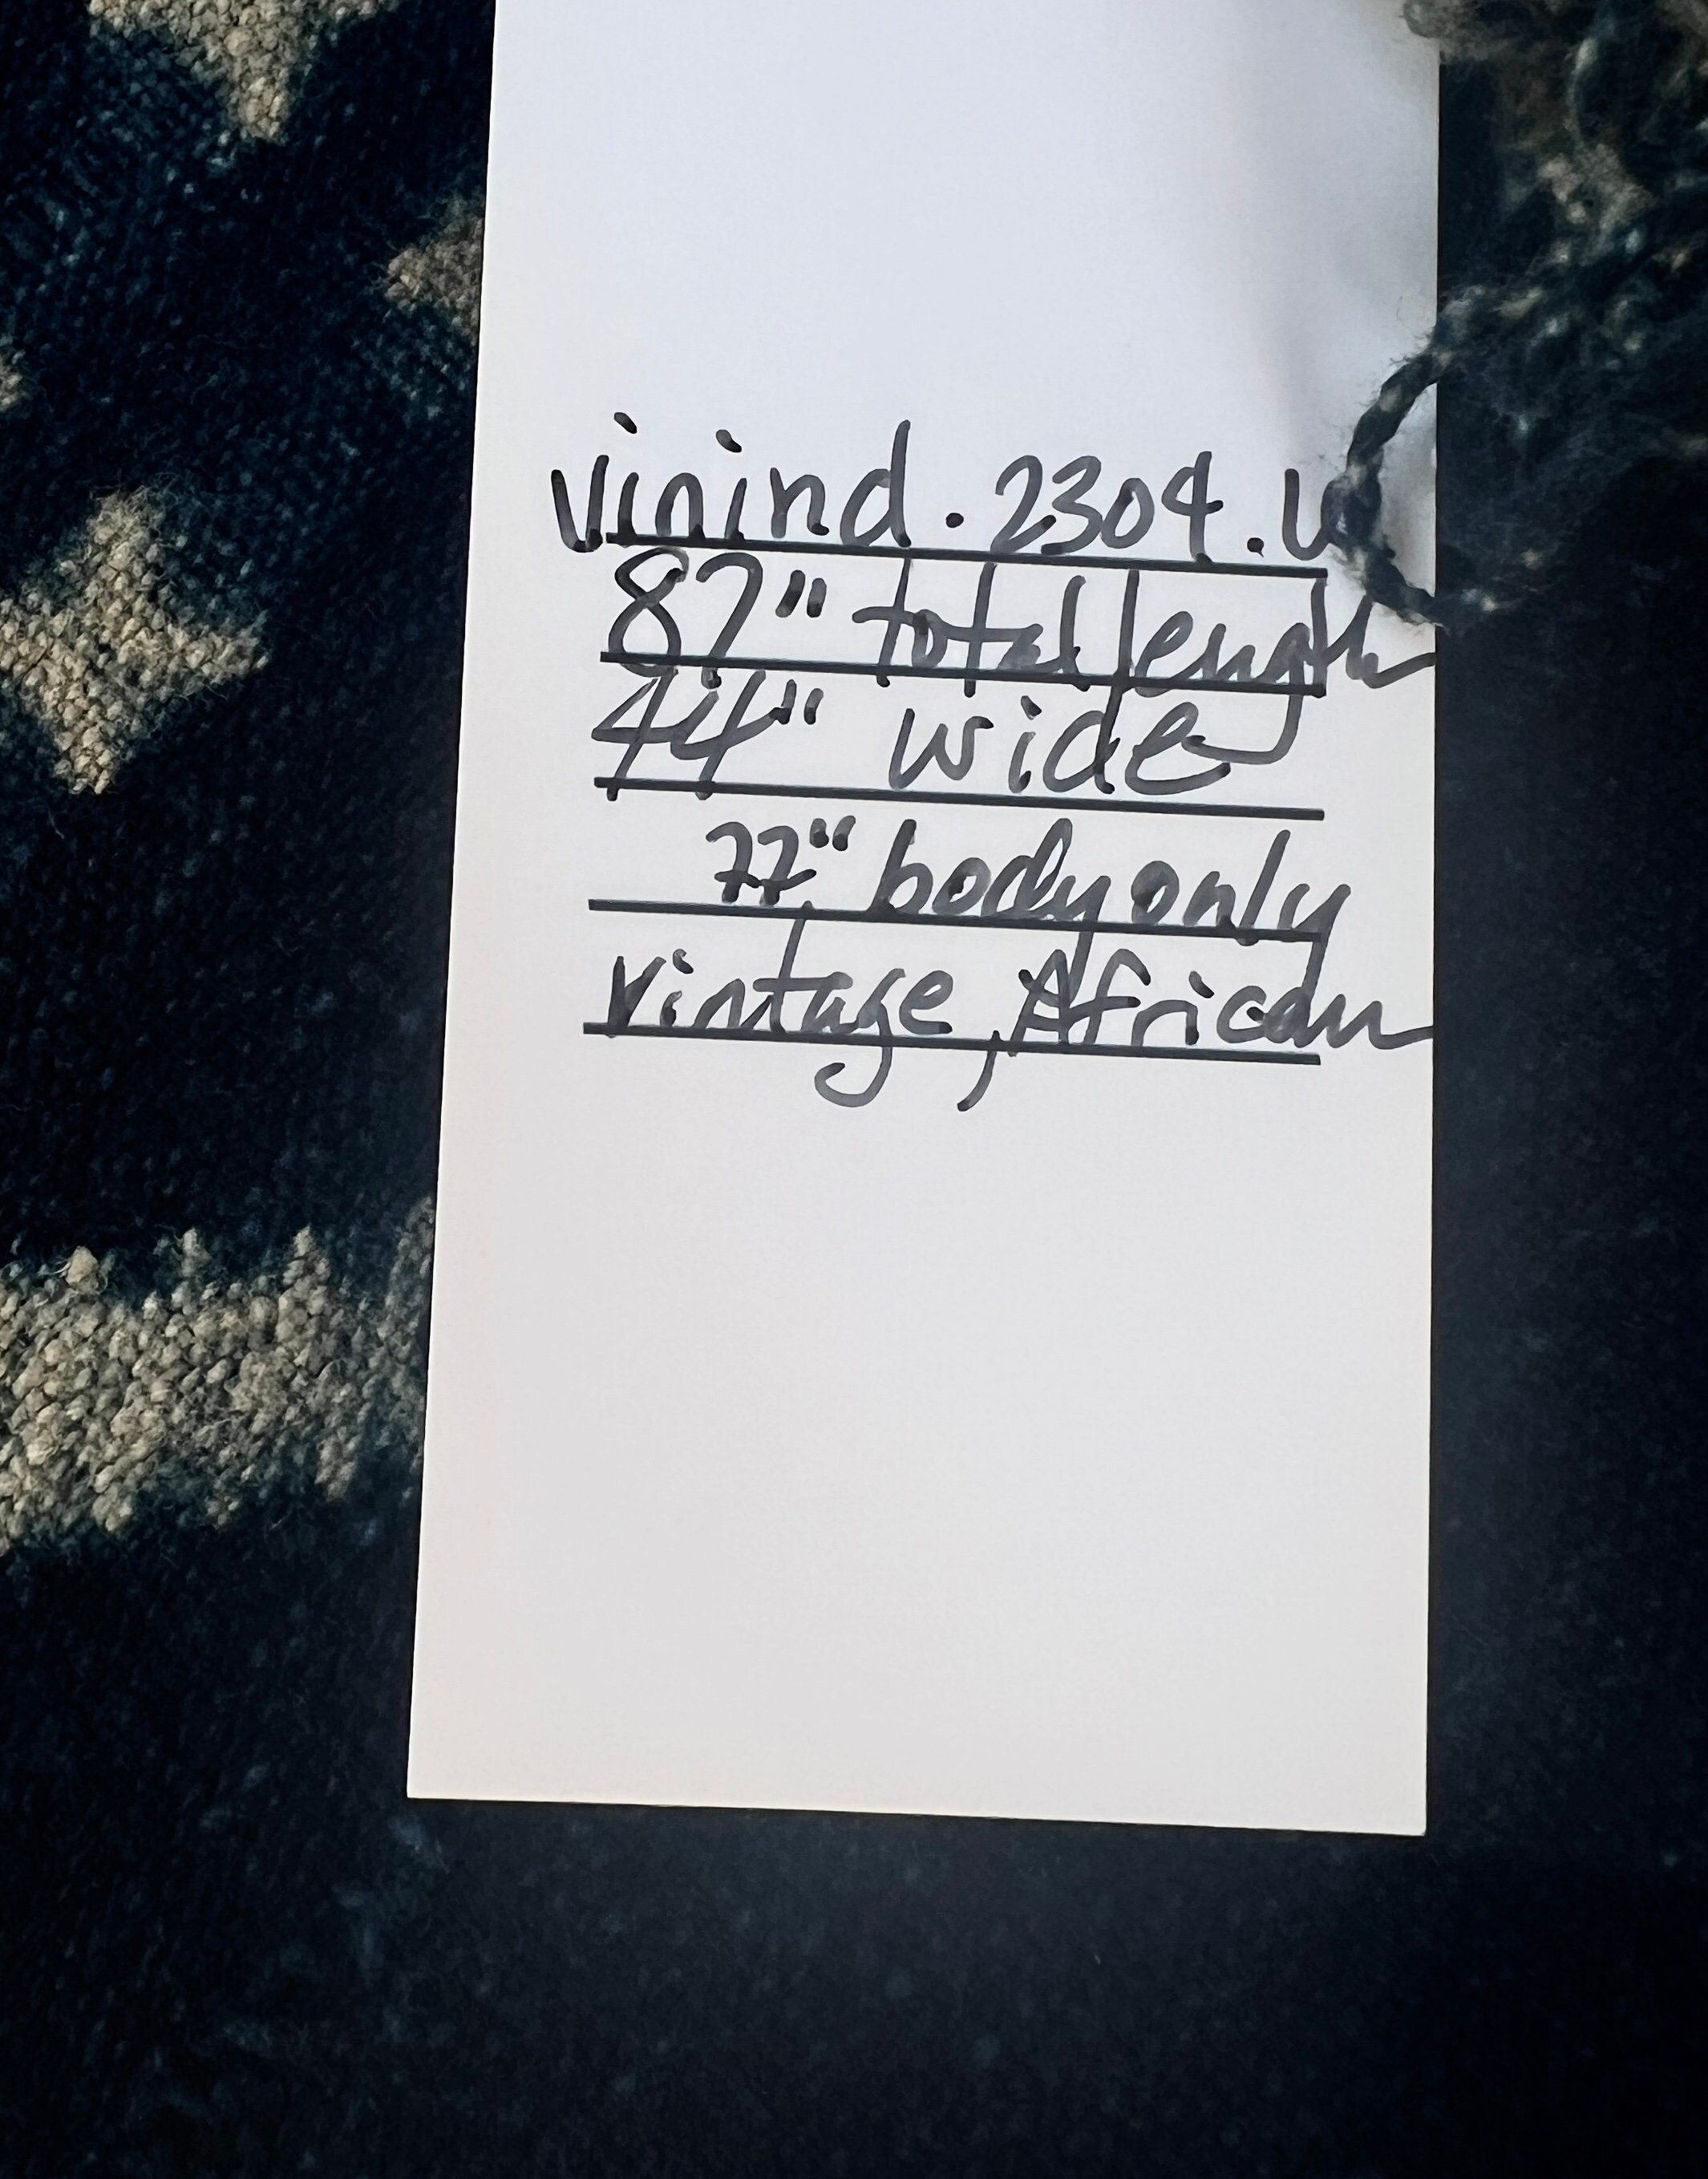 vinind. 2304.
87" total length
44" wide
77" body only
Vintage, African